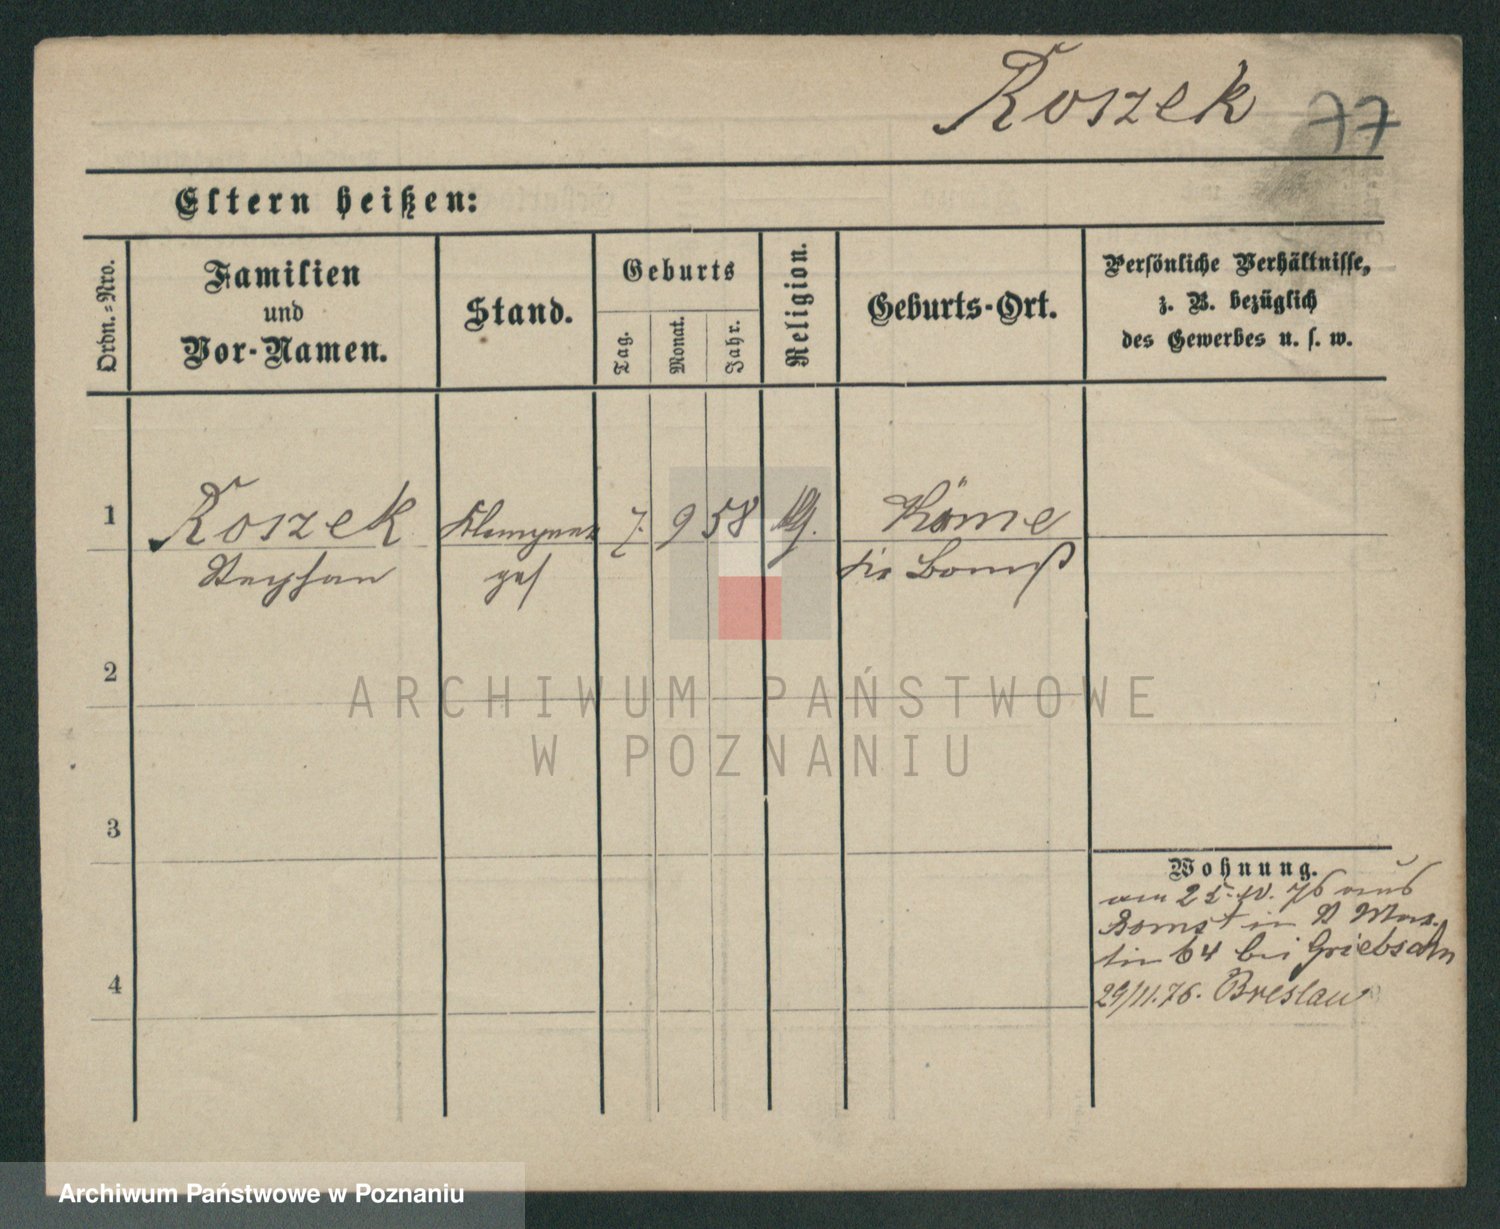 Koszek 77
Eltern heißen:
Ordn.=Nro.
Familien
und
Vor-Namen.
Stand.
Geburts
Tag.
Monat.
Jahr.
Religion.
Geburts-Ort.
Persönliche Verhältnisse,
z. B. bezüglich
des Gewerbes u. s. w.
1
Koszek
Stephan
Klempner
ges
7. 9 58
Bomst
2
3
4
Wohnung.
am 25. 10. 76 aus
Bomst in St Mar-
tin 64 bei Griebsch
29/11.76. Breslau
ARCHIWUM PAŃSTWOWE
W POZNANIU
Archiwum Państwowe w Poznaniu